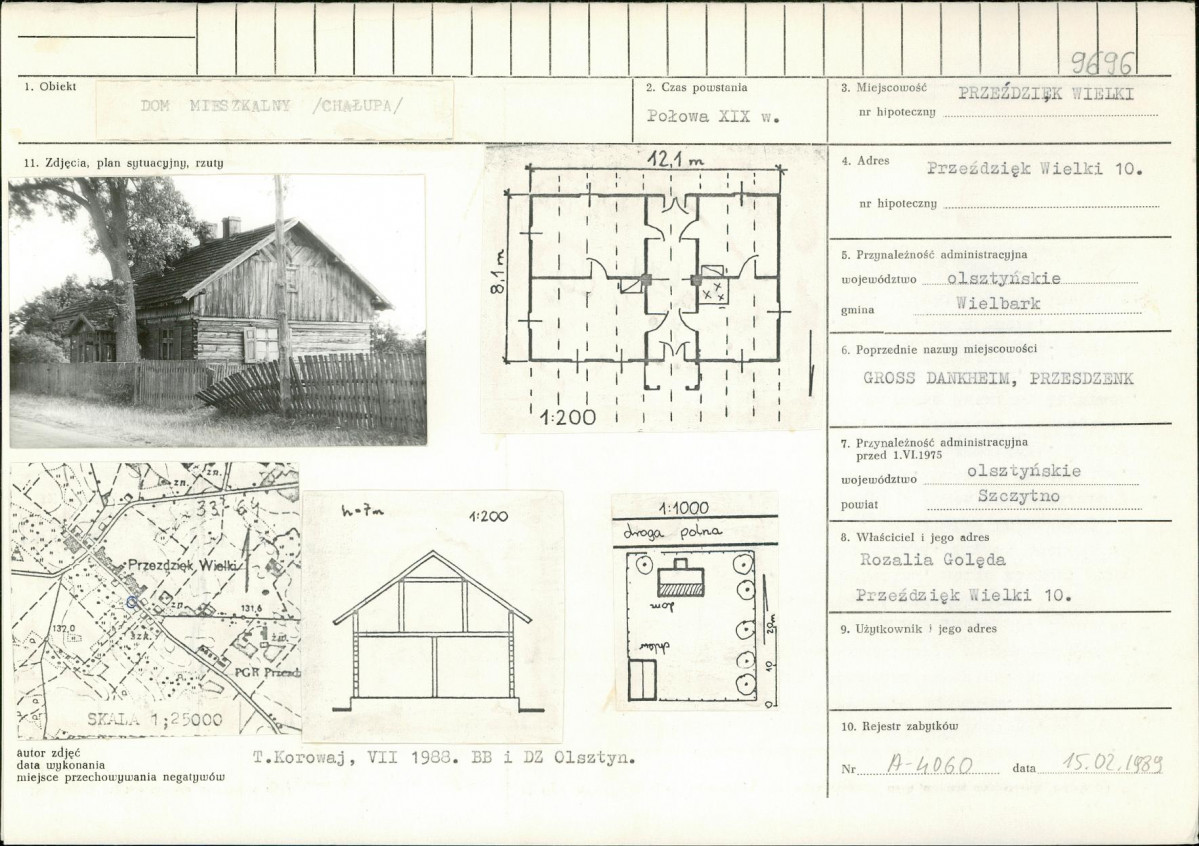 9696
1. Obiekt
DOM MIESZKALNY /CHAŁUPA/
2. Czas powstania
Połowa XIX w.
3. Miejscowość PRZEŹDZIĘK WIELKI
nr hipoteczny
11. Zdjęcia, plan sytuacyjny, rzuty
12,1 m
8,1 m
1:200
4. Adres Przeździęk Wielki 10.
nr hipoteczny
5. Przynależność administracyjna
województwo olsztyńskie
gmina Wielbark
6. Poprzednie nazwy miejscowości
GROSS DANKHEIM, PRZESDZENK
7. Przynależność administracyjna
przed 1.VI.1975
województwo olsztyńskie
powiat Szczytno
8. Właściciel i jego adres
Rozalia Golęda
Przeździęk Wielki 10.
9. Użytkownik i jego adres
10. Rejestr zabytków
Nr A-4060 data 15.02.1989
zn.
33-64
Przezdzięk Wielki
zn.
131,6
132,0
żw.
PGR Przezd
SKALA 1;25000
h=7m
1:200
1:1000
droga polna
dom
chlew
0 10 20m
autor zdjęć
data wykonania
miejsce przechowywania negatywów
T.Korowaj, VII 1988. BB i DZ Olsztyn.